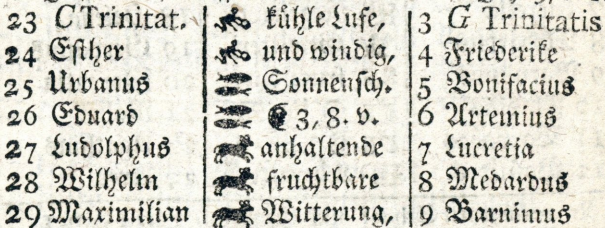 23 C Trinitat. kühle Lufe, 3 G Trinitatis
24 Esther und windig, 4 Friederike
25 Urbanus Sonnensch. 5 Bonifacius
26 Eduard ☾ 3, 8. v. 6 Artemius
27 Ludolphus anhaltende 7 Lucretia
28 Wilhelm fruchtbare 8 Medardus
29 Maximilian Witterung, 9 Barnimus